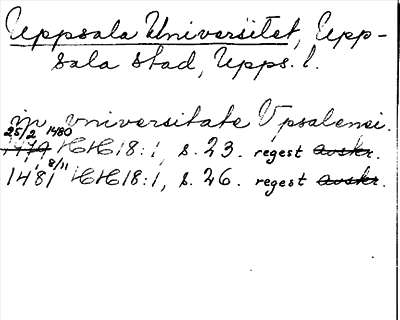 Uppsala Universitet, Upp-
sala stad, Upps. l.
in universitate Vpsalensi.
25/2 1480
1479 HH 18:1, s. 23. regest avskr.
8/11
1481 HH 18:1, s. 26. regest avskr.